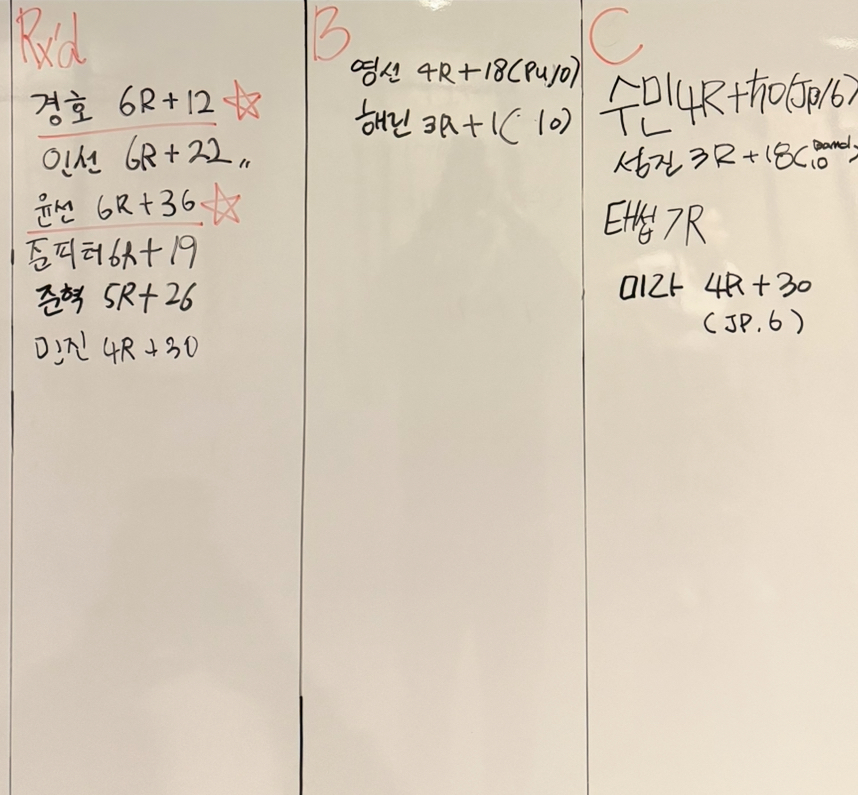 Rx'd
경호 6R+12
인선 6R+22
윤선 6R+36
준피터 6R+19
준혁 5R+26
민진 4R+30
B
영선 4R+18(PU10)
해린 3R+1( 10)
C
수민 4R+ (JP/6)
성진 3R+18(10 Band)
태섭 7R
미라 4R+30
(JP.6)